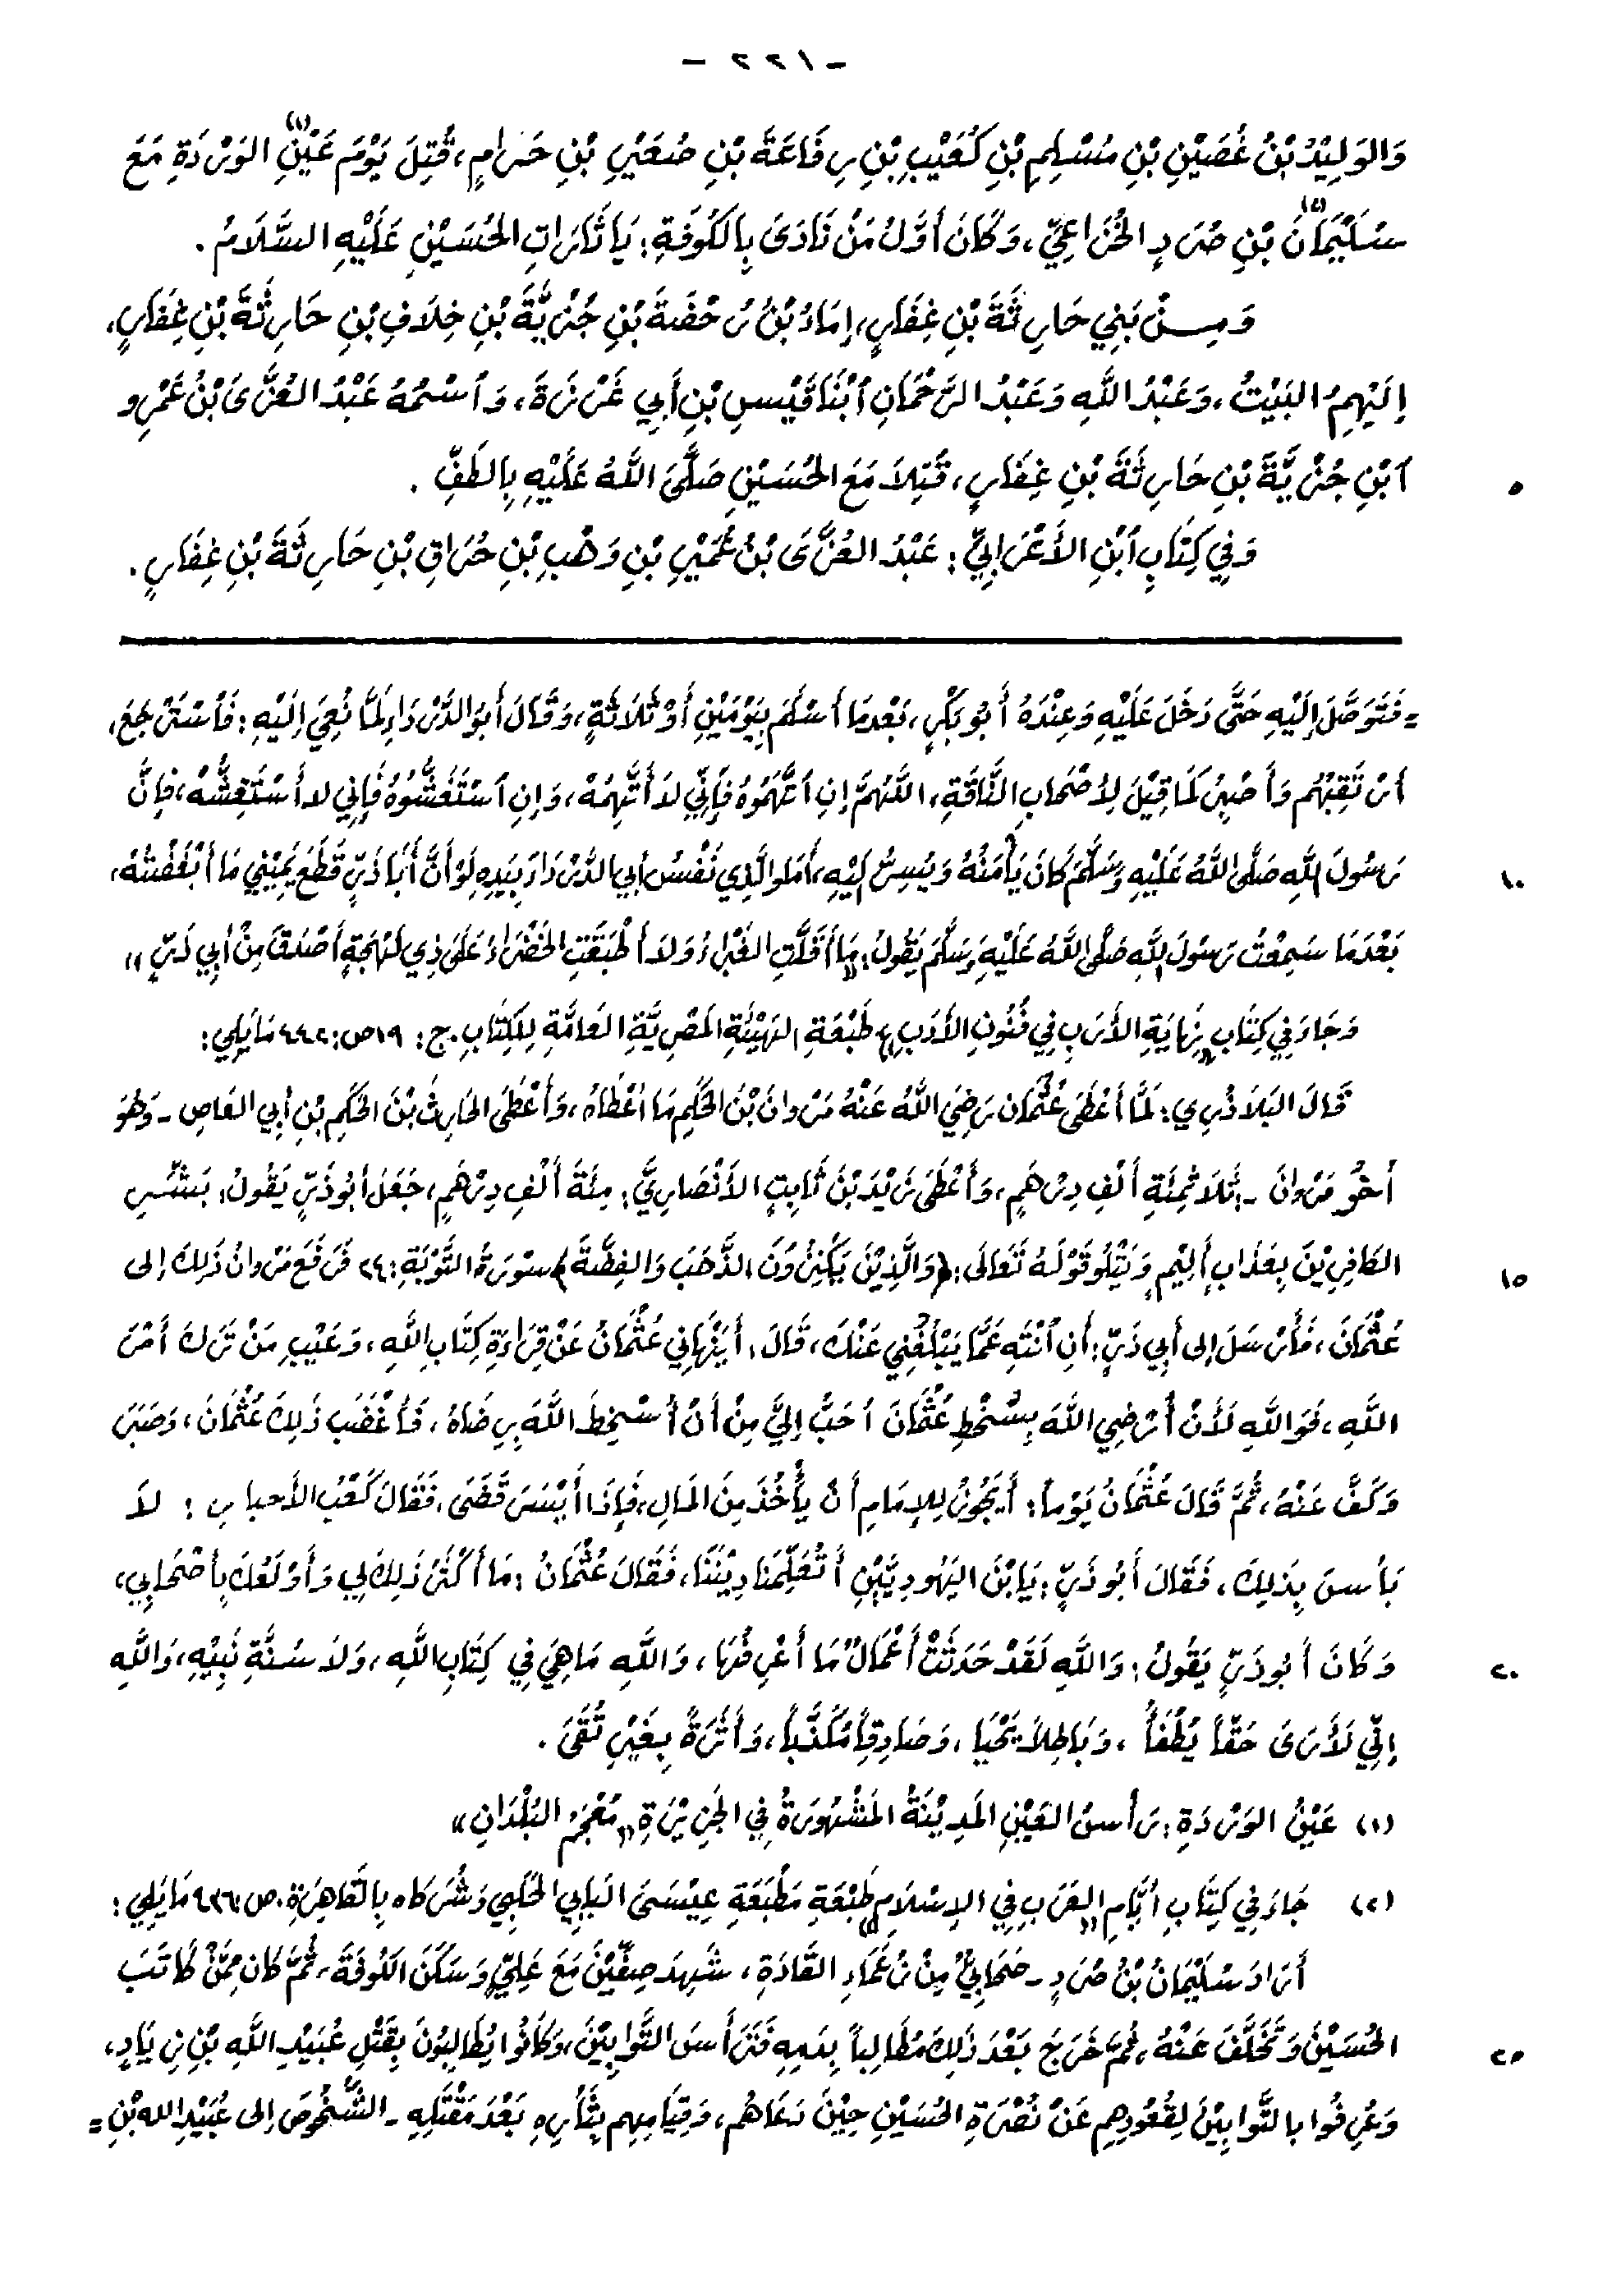 - ٢٢١ -
وَالوَلِيْدُ بْنُ غُصَيْنِ بْنِ مُسْلِمِ بْنِ كُعَيْبِ بْنِ رِفَاعَةَ بْنِ صُعَيْرِ بْنِ حَرَامٍ، قُتِلَ يَوْمَ عَيْنِ (١) الوَرْدَةِ مَعَ
سُلَيْمَانَ (٢) بْنِ صُرَدٍ الخُزَاعِيِّ، وَكَانَ أَوَّلُ مَنْ نَادَىَ بِالكُوفَةِ: يَا ثَارَاتِ الحُسَيْنِ عَلَيْهِ السَّلَامُ.
وَمِنْ بَنِي حَارِثَةَ بْنِ غِفَارٍ، إِمَاءُ بْنُ رَحْضَةَ بْنِ جُزَيَّةَ بْنِ خِلَافِ بْنِ حَارِثَةَ بْنِ غِفَارٍ،
إِلَيْهِمِ البَيْتُ، وَعَبْدُ اللَّهِ وَعَبْدُ الرَّحْمَانِ ٱبْنَا قَيْسِ بْنِ أَبِي غَرْزَةَ، وَٱسْمُهُ عَبْدُ العُزَّىَ بْنُ عَمْرِو
ٱبْنِ جُزَيَّةَ بْنِ حَارِثَةَ بْنِ غِفَارٍ، قُتِلاَ مَعَ الحُسَيْنِ صَلَّىَ اللَّهُ عَلَيْهِ بِالطَفِّ.
٥
وَفِي كِتَابِ ٱبْنِ الأَعْرَابِيِّ: عَبْدُ العُزَّىَ بْنُ عُمَيْرِ بْنِ وَهْبِ بْنِ حُرَاقِ بْنِ حَارِثَةَ بْنِ غِفَارٍ.
= فَتَوَصَّلَ إِلَيْهِ حَتَّى دَخَلَ عَلَيْهِ وَعِنْدَهُ أَبُو بَكْرٍ، بَعْدَمَا أَسْلَمَ بِيَوْمَيْنِ أَوْ ثَلَاثَةٍ، وَقَالَ أَبُو الدَّرْدَاءِ لَمَّا نُعِيَ إِلَيْهِ: فَٱسْتَرْجَعَ،
ٱرْتَقِبْهُم وَٱصْبِرْ كَمَا قِيْلَ لِأَصْحَابِ النَّاقَةِ، اللَّهُمَّ إِنِ ٱتَّهَمُوهُ فَإِنِّي لاَ أَتَّهِمُهُ، وَإِنِ ٱسْتَغَشُّوهُ فَإِنِّي لا أَسْتَغِشُّهُ، فَإِنَّ
رَسُولَ اللَّهِ صَلَّىَ اللَّهُ عَلَيْهِ وَسَلَّمَ كَانَ يَأْمَنُهُ وَيُسِرُّ إِلَيْهِ، أَمَا وَالَّذِي نَفْسُ أَبِي الدَّرْدَاءِ بِيَدِهِ لَوْ أَنَّ أَبَا ذَرٍّ قَطَعَ يَمِيْنِي مَا أَبْغَضْتُهُ،
١٠
بَعْدَمَا سَمِعْتُ رَسُولَ اللَّهِ صَلَّىَ اللَّهُ عَلَيْهِ وَسَلَّمَ يَقُولُ: «مَا أَقَلَّتِ الغَبْرَاءُ وَلاَ أَطْبَقَتِ الخَضْرَاءُ عَلَىَ ذِي لَهْجَةٍ أَصْدَقَ مِنْ أَبِي ذَرٍّ»
وَجَاءَ فِي كِتَابِ «نِهَايَةِ الأَرَبِ فِي فُنُونِ الأَدَبِ» طَبْعَةِ الهَيْئَةِ المَصْرِيَّةِ العَامَّةِ لِلكِتَابِ. ج: ١٩ ص: ٤٤٢ مَا يَلِي:
قَالَ البَلاَذُرِي: لَمَّا أَعْطَىَ عُثْمَانُ رَضِيَ اللَّهُ عَنْهُ مَرْوانَ بْنَ الحَكَمِ مَا أَعْطَاهُ، وَأَعْطَىَ الحَارِثَ بْنَ الحَكَمِ بْنِ أَبِي العَاصِ - وَهُوَ
أَخُو مَرْوانَ - ثَلاَثَمِئَةِ أَلْفِ دِرْهَمٍ، وَأَعْطَىَ زَيْدَ بْنَ ثَابِتٍ الأَنْصَارِيَّ: مِئَةَ أَلْفِ دِرْهَمٍ، جَعَلَ أَبُو ذَرٍّ يَقُولُ: بَشِّرِ
الكَافِرِيْنَ بِعَذَابٍ أَلِيْمٍ وَيَتْلُو قَوْلَهُ تَعَالَىَ: (وَالَّذِيْنَ يَكْنِزُونَ الذَّهَبَ وَالفِضَّةَ) سُوْرَةُ التَّوْبَةِ: ٣٤ فَرَفَعَ مَرْوانُ ذَلِكَ إلى
١٥
عُثْمَانَ، فَأَرْسَلَ إلى أَبِي ذَرٍّ: أَنِ ٱنْتَهِ عَمَّا يَبْلُغُنِي عَنْكَ، قَالَ: أَيَنْهَانِي عُثْمَانُ عَنْ قِرَاءَةِ كِتَابِ اللَّهِ، وَعَيْبِ مَنْ تَرَكَ أَمْرَ
اللَّهِ، فَوَاللَّهِ لَأَنْ أُرْضِيَ اللَّهَ بِسُخْطِ عُثْمَانَ أَحَبُّ إِلَيَّ مِنْ أَنْ أُسْخِطَ اللَّهَ بِرِضَاهُ، فَأَغْضَبَ ذَلِكَ عُثْمَانَ، وَصَبَرَ
وَكَفَّ عَنْهُ، ثُمَّ قَالَ عُثْمَانُ يَوْماً: أَيَجُوزُ لِلإِمَامِ أَنْ يَأْخُذَ مِنَ المَالِ، فَإِذَا أَيْسَرَ قَضَىَ، فَقَالَ كَعْبُ الأَحبارِ: لاَ
بَأْسَ بِذَلِكَ، فَقَالَ أَبُو ذَرٍّ: يَا بْنَ اليَهُودِيَّيْنِ أَتُعَلِّمُنَا دِيْنَنَا، فَقَالَ عُثْمَانُ: مَا أَكْثَرَ ذَلِكَ لِي وَأَوْلَعَكَ بِأَصْحَابِي،
وَكَانَ أَبُو ذَرٍّ يَقُولُ: وَاللَّهِ لَقَدْ حَدَثَتْ أَعْمَالٌ مَا أَعْرِفُهَا، وَاللَّهِ مَا هِيَ فِي كِتَابِ اللَّهِ، وَلاَ سُنَّةِ نَبِيِّهِ، وَاللَّهِ
٢٠
إِنِّي لَأَرَىَ حَقّاً يُطْفَأُ، وَبَاطِلاً يَحْيَا، وَصَادِقاً مُكَذَّباً، وَأَثَرَةً بِغَيْرِ تُقَىَ.
(١) عَيْنُ الوَرْدَةِ: رَأْسُ العَيْنِ المَدِيْنَةُ المَشْهُورَةُ فِي الجَزِيْرَةِ «مُعْجَمُ البُلْدَانِ»
(٢) جَاءَ فِي كِتَابِ «أَيَّامِ العَرَبِ فِي الإِسْلاَمِ» طَبْعَةِ مَطْبَعَةِ عِيْسَىَ البَابِي الحَلَبِي وَشُرَكاه بِالقَاهِرَةِ. ص ٤٣٦ مَا يَلِي:
أَرَادَ سُلَيْمَانُ بْنُ صُرَدٍ - صَحَابِيٌّ مِنْ زُعَمَاءِ القَادَةِ، شَهِدَ صِفِّيْنَ مَعَ عَلِيٍّ وَسَكَنَ الكُوفَةَ، ثُمَّ كَانَ مِمَّنْ كَاتَبَ
الحُسَيْنَ وَتَخَلَّفَ عَنْهُ، ثُمَّ خَرَجَ بَعْدَ ذَلِكَ مُطَالِباً بِدَمِهِ فَتَرَأَّسَ التَّوابِيْنَ، وَكَانُوا يُطَالِبُونَ بِقَتْلِ عُبَيْدِ اللَّهِ بْنِ زِيَادٍ،
٢٥
وَعُرِفُوا بالتَّوابِيْنَ لِقُعُودِهِم عَنْ نُصْرَةِ الحُسَيْنِ حِيْنَ دَعَاهُم، وَقِيَامِهِم بِثَأْرِهِ بَعْدَ مَقْتَلِهِ - الشُّخُوصَ إِلى عُبَيْدِ الله بْنِ =